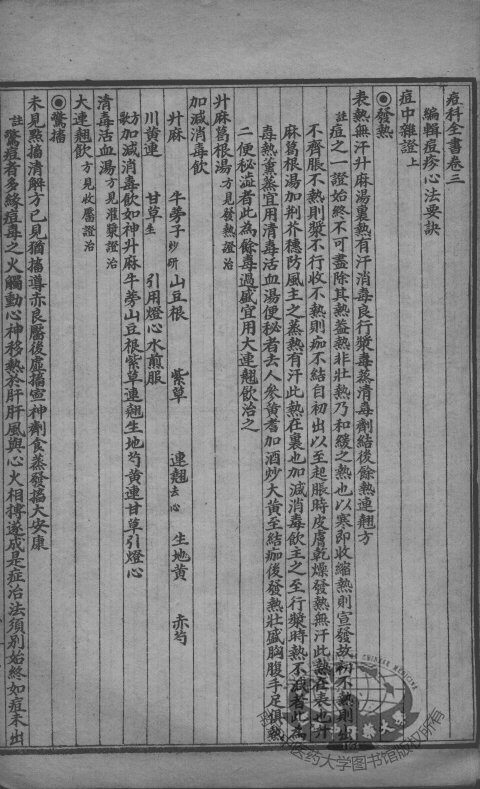 痘科全書卷三
編輯痘疹心法要訣
痘中雜證上
◉發熱
表熱無汗升麻湯裏熱有汗消毒良行漿毒蒸清毒劑結後餘熱連翹方
註痘之一證始終不可盡除其熱葢熱非壯熱乃和緩之熱也以寒即收縮熱則宣發故初不熱則出
不齊脹不熱則漿不行收不熱則痂不結自初出以至起脹時皮膚乾燥發熱無汗此熱在表也升
麻葛根湯加荆芥穗防風主之蒸熱有汗此熱在裏也加減消毒飲主之至行漿時熱不減者此為
毒熱熏蒸宜用清毒活血湯便秘者去人參黃耆加酒炒大黃至結痂後發熱壯盛胸腹手足俱熱
二便秘澁者此為餘毒過盛宜用大連翹飲治之
升麻葛根湯方見發熱證治
加減消毒飲
升麻 牛蒡子炒研 山豆根 紫草 連翹去心 生地黃 赤芍
川黃連 甘草生 引用燈心水煎服
方歌加減消毒飲如神升麻牛蒡山豆根紫草連翹生地芍黃連甘草引燈心
清毒活血湯方見灌漿證治
大連翹飲方見收靨證治
◉驚搐
未見點搐清解方已見猶搐導赤良靨後虛搐寧神劑食蒸發搐大安康
註驚痘者多緣痘毒之火觸動心神移熱於肝肝風與心火相摶遂成是症治法須别始終如痘未出
医药大学图书馆版权所有